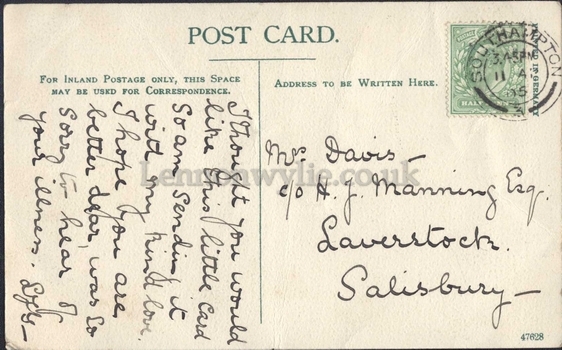 POST CARD.
FOR INLAND POSTAGE ONLY, THIS SPACE
MAY BE USED FOR CORRESPONDENCE.
ADDRESS TO BE WRITTEN HERE.
SOUTHAMPTON
3.45PM
11 A
05
HALF
I thought you would
like this little card
so am sending it
with my kind love.
I hope you are
better dear, was so
sorry to hear of
your illness.
Mrs Davis–
c/o H. J. Manning Esq.
Laverstock.
Salisbury–
Lennonwylie.co.uk
47628